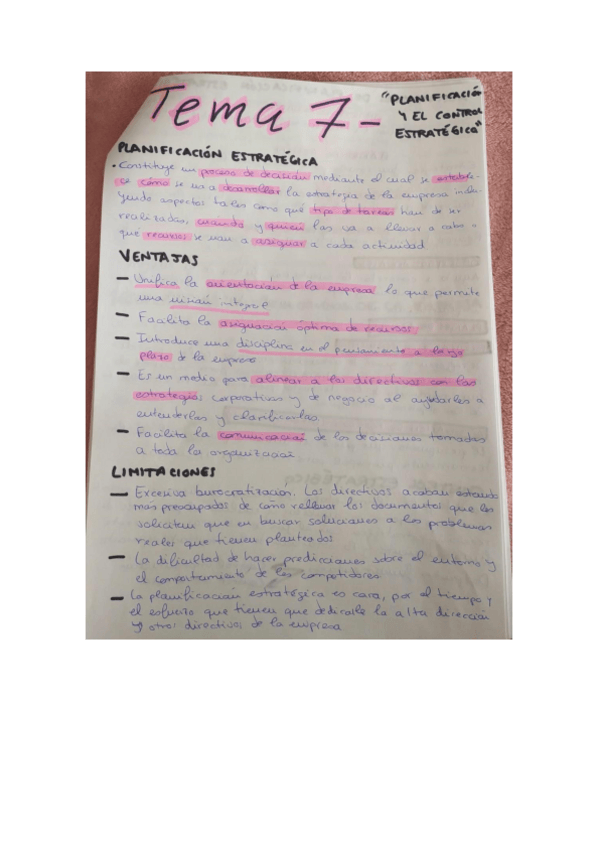 Tema 7-
"PLANIFICACIÓN
Y EL CONTROL
ESTRATÉGICO"
PLANIFICACIÓN ESTRATÉGICA
• Constituye un proceso de decisión mediante el cual se estable-
ce cómo se va a desarrollar la estrategia de la empresa inclu-
yendo aspectos tales como qué tipo de tareas han de ser
realizadas, cuando y quien las va a llevar a cabo o
qué recursos se van a asignar a cada actividad
VENTAJAS
- Unifica la orientación de la empresa lo que permite
una visión integral
- Facilita la asignación óptima de recursos.
- Introduce una disciplina en el pensamiento a largo
plazo de la empresa
- Es un medio para alinear a los directivos con las
estrategias corporativas y de negocio al ayudarles a
entenderlas y clarificarlas
- Facilita la comunicación de las decisiones tomadas
a toda la organización
LIMITACIONES
- Excesiva burocratización. Los directivos acaban estando
más preocupados de cómo rellenar los documentos que les
solicitan que en buscar soluciones a los problemas
reales que tienen planteados
- La dificultad de hacer predicciones sobre el entorno y
el comportamiento de los competidores
- La planificación estratégica es cara, por el tiempo y
el esfuerzo que tienen que dedicarle la alta dirección
y otros directivos de la empresa